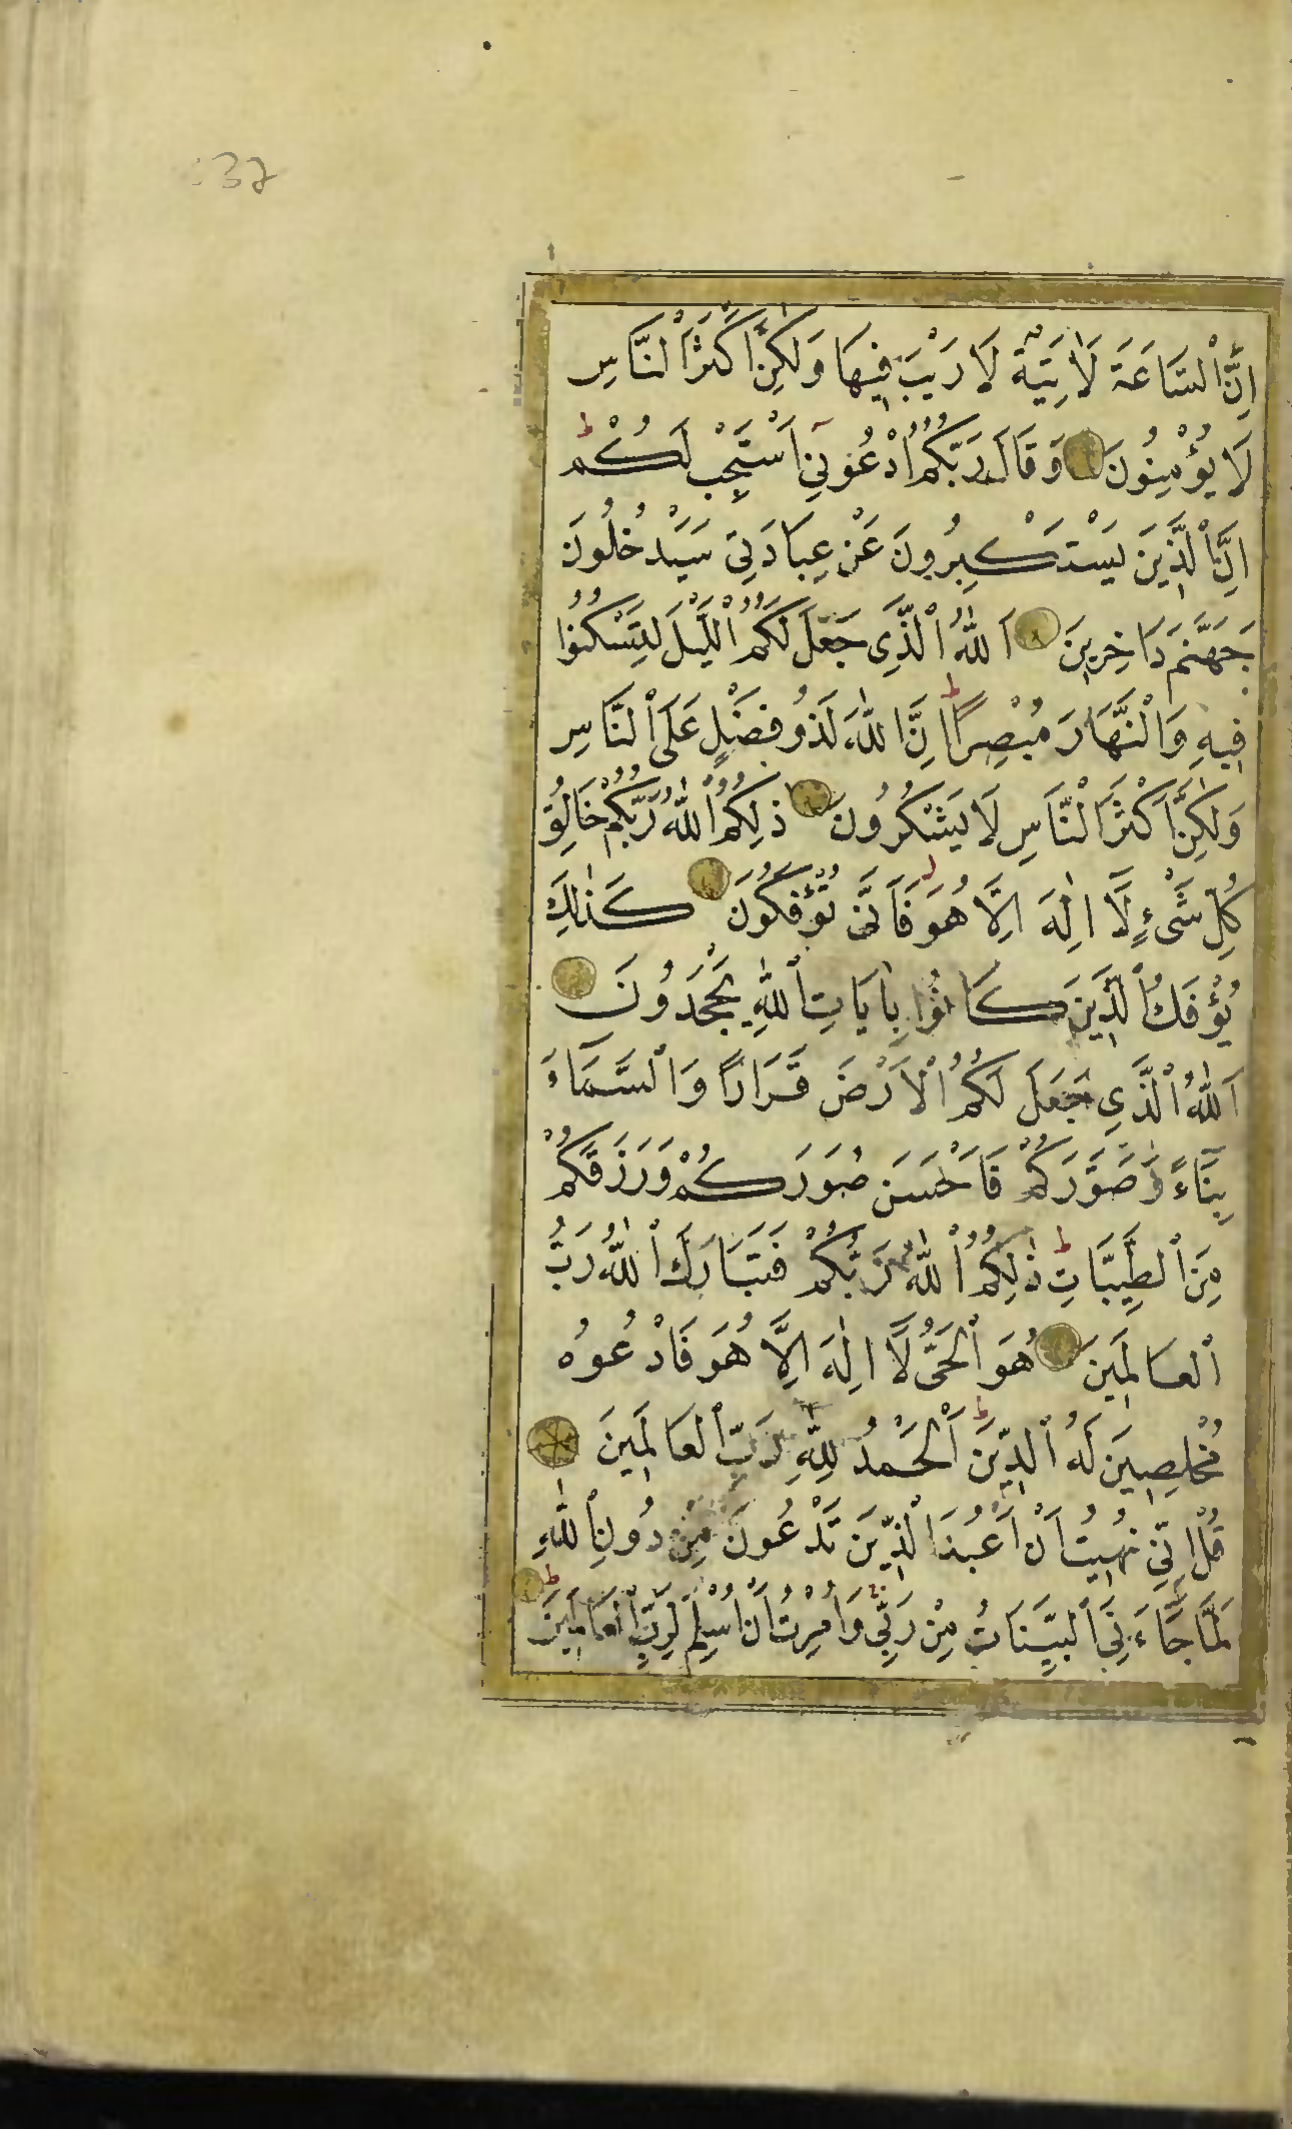 اِنَّ ٱلسَّاعَةَ لَاٰتِيَةٌ لَا رَيْبَ فِيهَا وَلٰكِنَّ اَكْثَرَ ٱلنَّاسِ
لَا يُؤْمِنُونَ وَقَالَ رَبُّكُمُ ٱدْعُونِىٓ اَسْتَجِبْ لَكُمْ ط
اِنَّ ٱلَّذِينَ يَسْتَكْبِرُونَ عَنْ عِبَادَتِى سَيَدْخُلُونَ
جَهَنَّمَ دَاخِرِينَ اَللّٰهُ ٱلَّذِى جَعَلَ لَكُمُ ٱلَّيْلَ لِتَسْكُنُوا
فِيهِ وَٱلنَّهَارَ مُبْصِرًا ط اِنَّ ٱللّٰهَ لَذُو فَضْلٍ عَلَى ٱلنَّاسِ
وَلٰكِنَّ اَكْثَرَ ٱلنَّاسِ لَا يَشْكُرُونَ ذٰلِكُمُ ٱللّٰهُ رَبُّكُمْ خَالِقُ
كُلِّ شَىْءٍ لَٓا اِلٰهَ اِلَّا هُوَ فَاَنّٰى تُؤْفَكُونَ كَذٰلِكَ
يُؤْفَكُ ٱلَّذِينَ كَانُوا بِاٰيَاتِ ٱللّٰهِ يَجْحَدُونَ
اَللّٰهُ ٱلَّذِى جَعَلَ لَكُمُ ٱلْاَرْضَ قَرَارًا وَٱلسَّمَٓاءَ
بِنَٓاءً وَصَوَّرَكُمْ فَاَحْسَنَ صُوَرَكُمْ وَرَزَقَكُمْ
مِنَ ٱلطَّيِّبَاتِ ط ذٰلِكُمُ ٱللّٰهُ رَبُّكُمْ فَتَبَارَكَ ٱللّٰهُ رَبُّ
ٱلْعَالَمِينَ هُوَ ٱلْحَىُّ لَٓا اِلٰهَ اِلَّا هُوَ فَادْعُوهُ
مُخْلِصِينَ لَهُ ٱلدِّينَ ط اَلْحَمْدُ لِلّٰهِ رَبِّ ٱلْعَالَمِينَ
قُلْ اِنِّى نُهِيتُ اَنْ اَعْبُدَ ٱلَّذِينَ تَدْعُونَ مِنْ دُونِ ٱللّٰهِ
لَمَّا جَٓاءَنِىَ ٱلْبَيِّنَاتُ مِنْ رَبِّى وَاُمِرْتُ اَنْ اُسْلِمَ لِرَبِّ ٱلْعَالَمِينَ ط